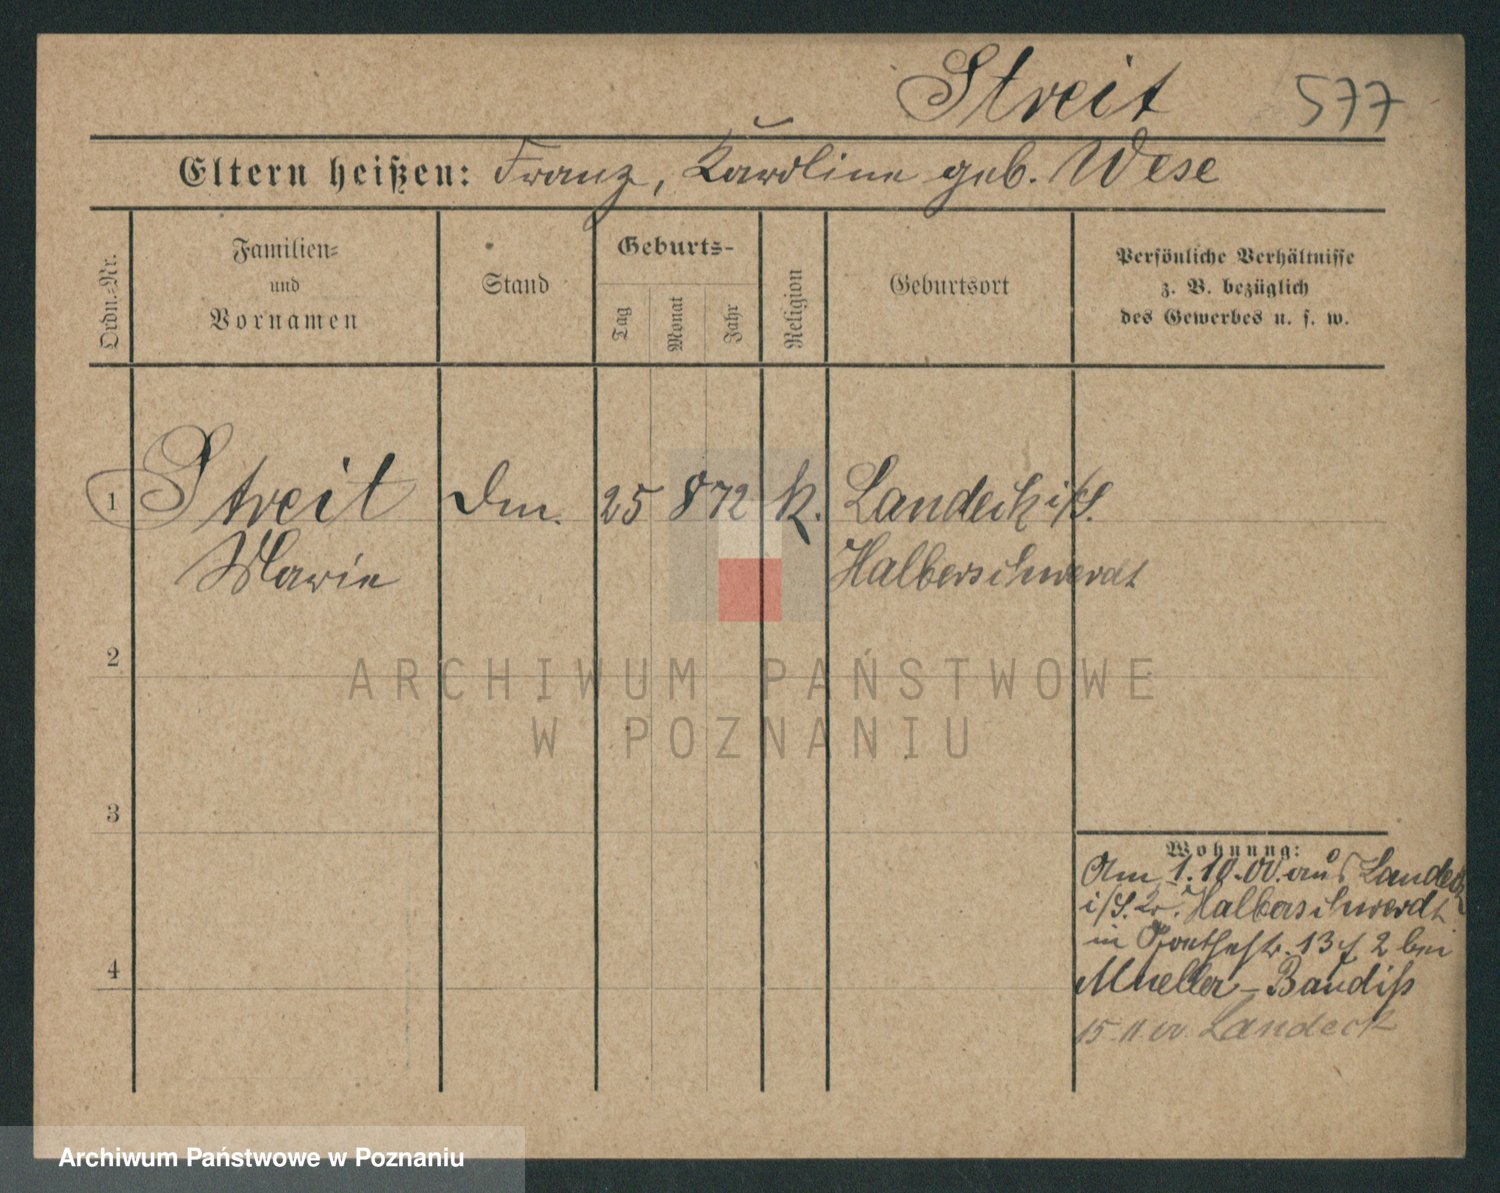 Streit 577
Eltern heißen: Franz, Karoline geb. Wese
Ordn.-Nr.
Familien-
und
Vornamen
Stand
Geburts-
Tag
Monat
Jahr
Religion
Geburtsort
Persönliche Verhältnisse
z. B. bezüglich
des Gewerbes u. s. w.
1 Streit 25 8 72 k. Landeck i/S.
Marie Halberschwerdt
2
ARCHIWUM PAŃSTWOWE
W POZNANIU
3
Wohnung:
Am 1.10.00. aus Landeck
i/S. Kr. Halberschwerdt
in 13 2 bei
Mueller-Baudiß
4
15.11.00. Landeck
Archiwum Państwowe w Poznaniu